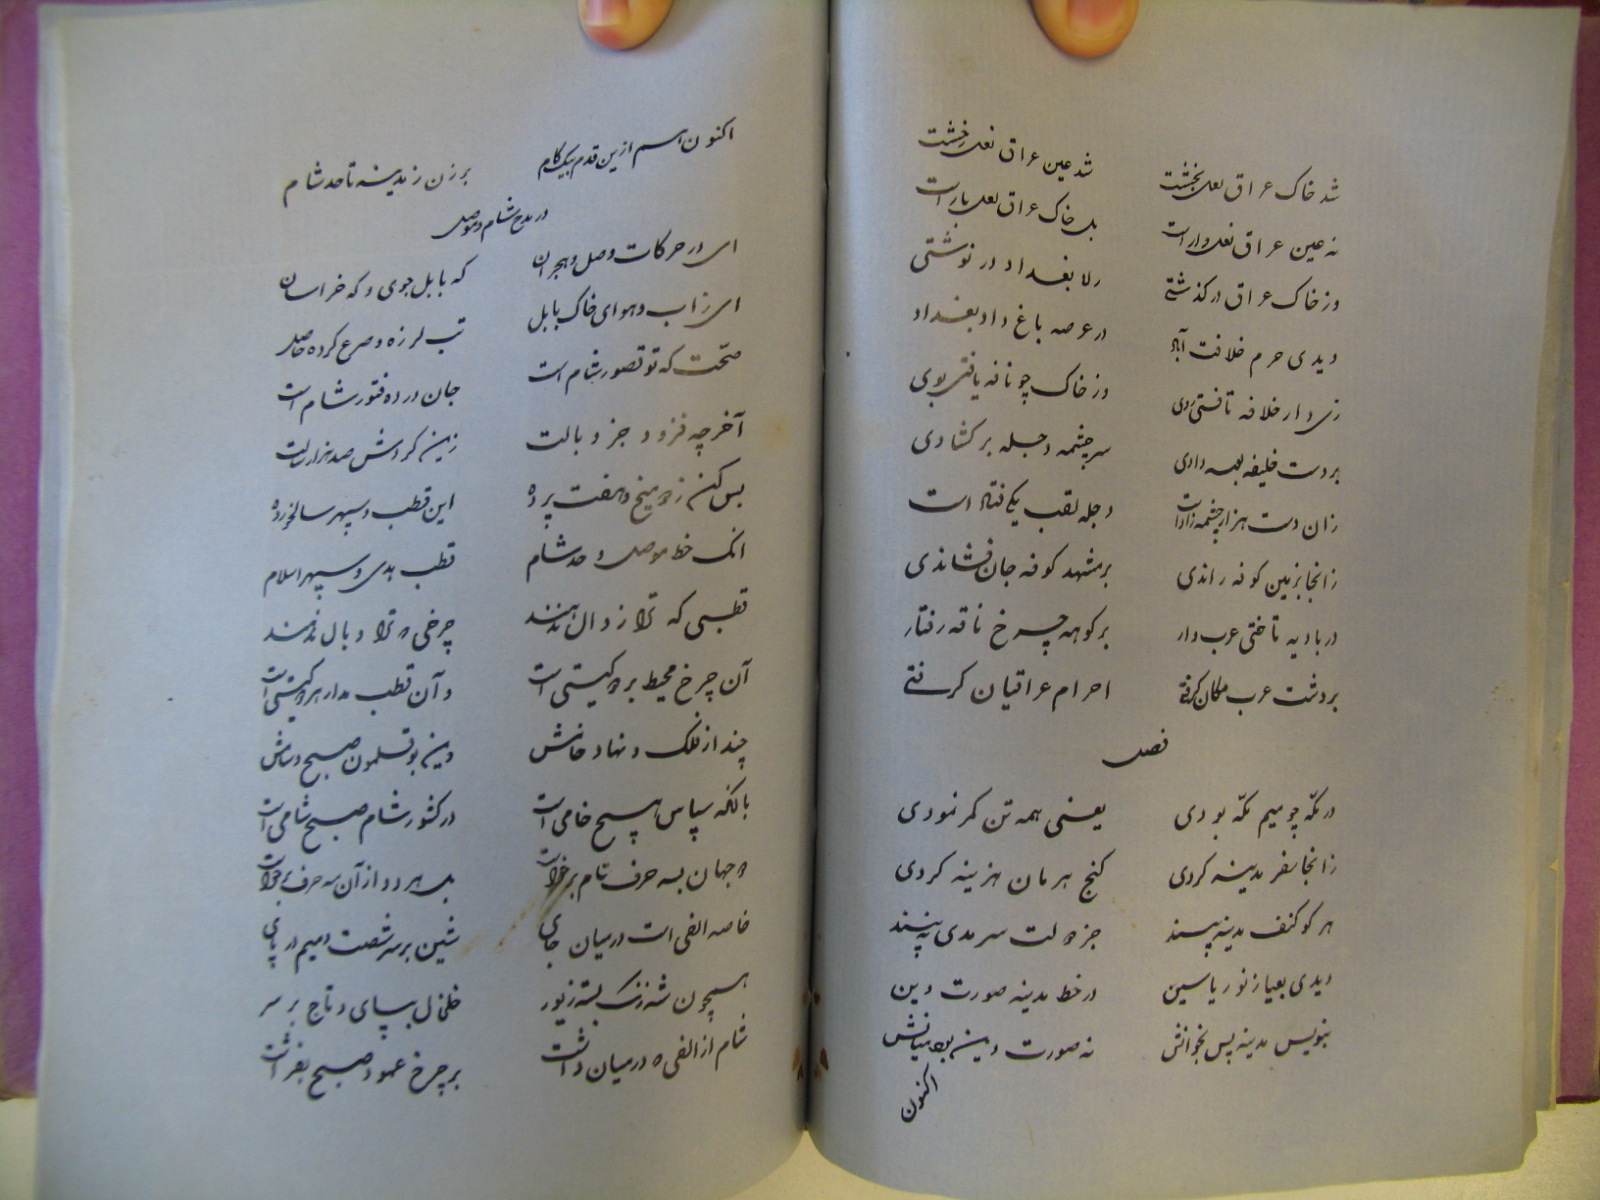 شد خاک عراق نعل بخشت شد عین عراق نعل رخشت
نه عین عراق نعل دارات بل خاک عراق نعل بارات
وز خاک عراق درگذشتی راه بغداد در نوشتی
دیدی حرم خلافت آباد در عرصه باغ داد بغداد
زی دار خلافه تافتی روی وز خاک چو نافه یافتی بوی
بر دست خلیفه بوسه دادی سرچشمه دجله برگشادی
زان دست هزار چشمه زادات دجله لقب یکی فتادات
زانجا بزمین کوفه راندی بر مشهد کوفه جان فشاندی
در بادیه تاختی عرب وار بر کوهه چرخ ناقه رفتار
بر دشت عرب مکان گرفتی احرام عراقیان گرفتی
فصل
در مکّه چو میم مکّه بودی یعنی همه تن کمر نمودی
زانجا سفر مدینه کردی گنج هرمان هزینه کردی
هر کو کنف مدینه بیند جز دولت سرمدی نه بیند
دیدی بعیار نور یاسین در خط مدینه صورت دین
بنویس مدینه پس بخوانش نه صورت دین بود میانش
اکنون
اکنون هم ازین قدم بیک گام برزن ز مدینه تا حد شام
در مدح شام و موصل
ای در حرکات وصل و هجران گه بابل جوی و گه خراسان
ای ز آب و هوای خاک بابل تب لرزه و صرع کرده حاصل
صحّت که تو تصور شام است جان درده فتور شام است
آخر چه فزود جز وبالت زین گردش صد هزار سالت
بس کن ز دو میخ و هفت پرده این قطب و سپهر سالخورده
انک خط موصل و حد شام قطب هدی و سپهر اسلام
قطبی که ترا زوال ندهند چرخی که ترا وبال ندهند
آن چرخ محیط هر دو گیتی است و آن قطب مدار هر دو گیتی است
چند از فلک و نهاد خامش وین بوقلمون صبح و شامش
بالله سپاس هیچ خامی است در کشور شام صبح شامی است
دو جهان بسه حرف شام برخوات بل هر دو از آن سه حرف برخوات
خاصه الفی است در میان جای شین بر سر شصت و میم در پای
همچون شه زنگ بسته زیور خلخال بپای و تاج بر سر
شام از الفی که در میان داشت بر چرخ عمود صبح بفراشت